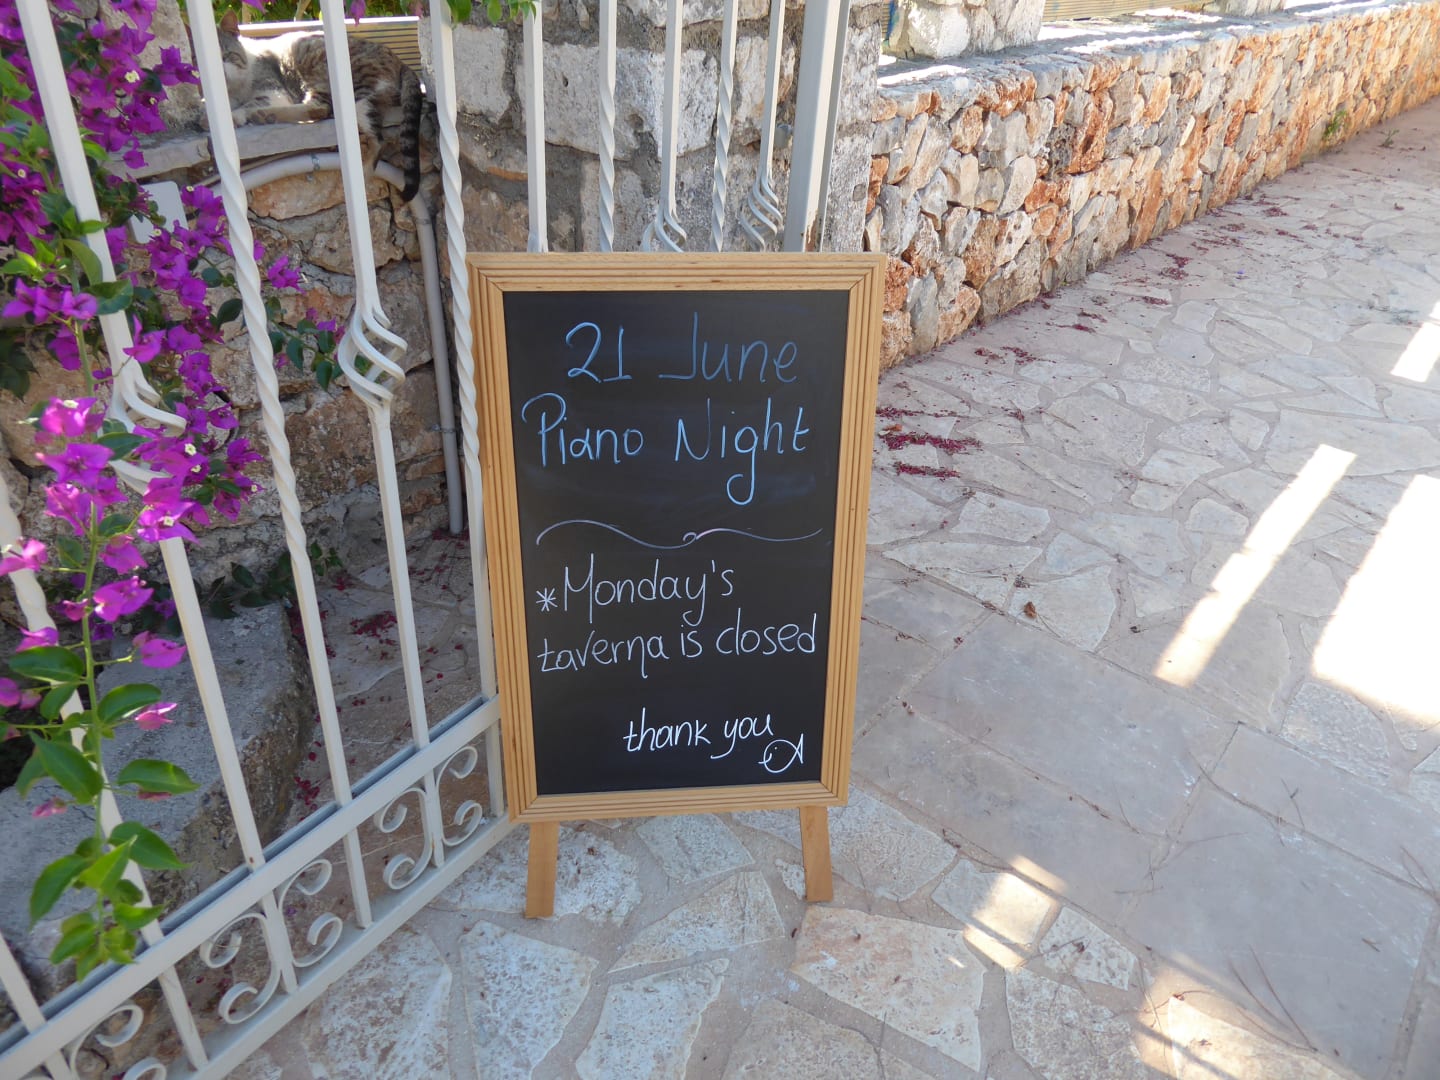 21 June
Piano Night
*Monday's
taverna is closed
thank you